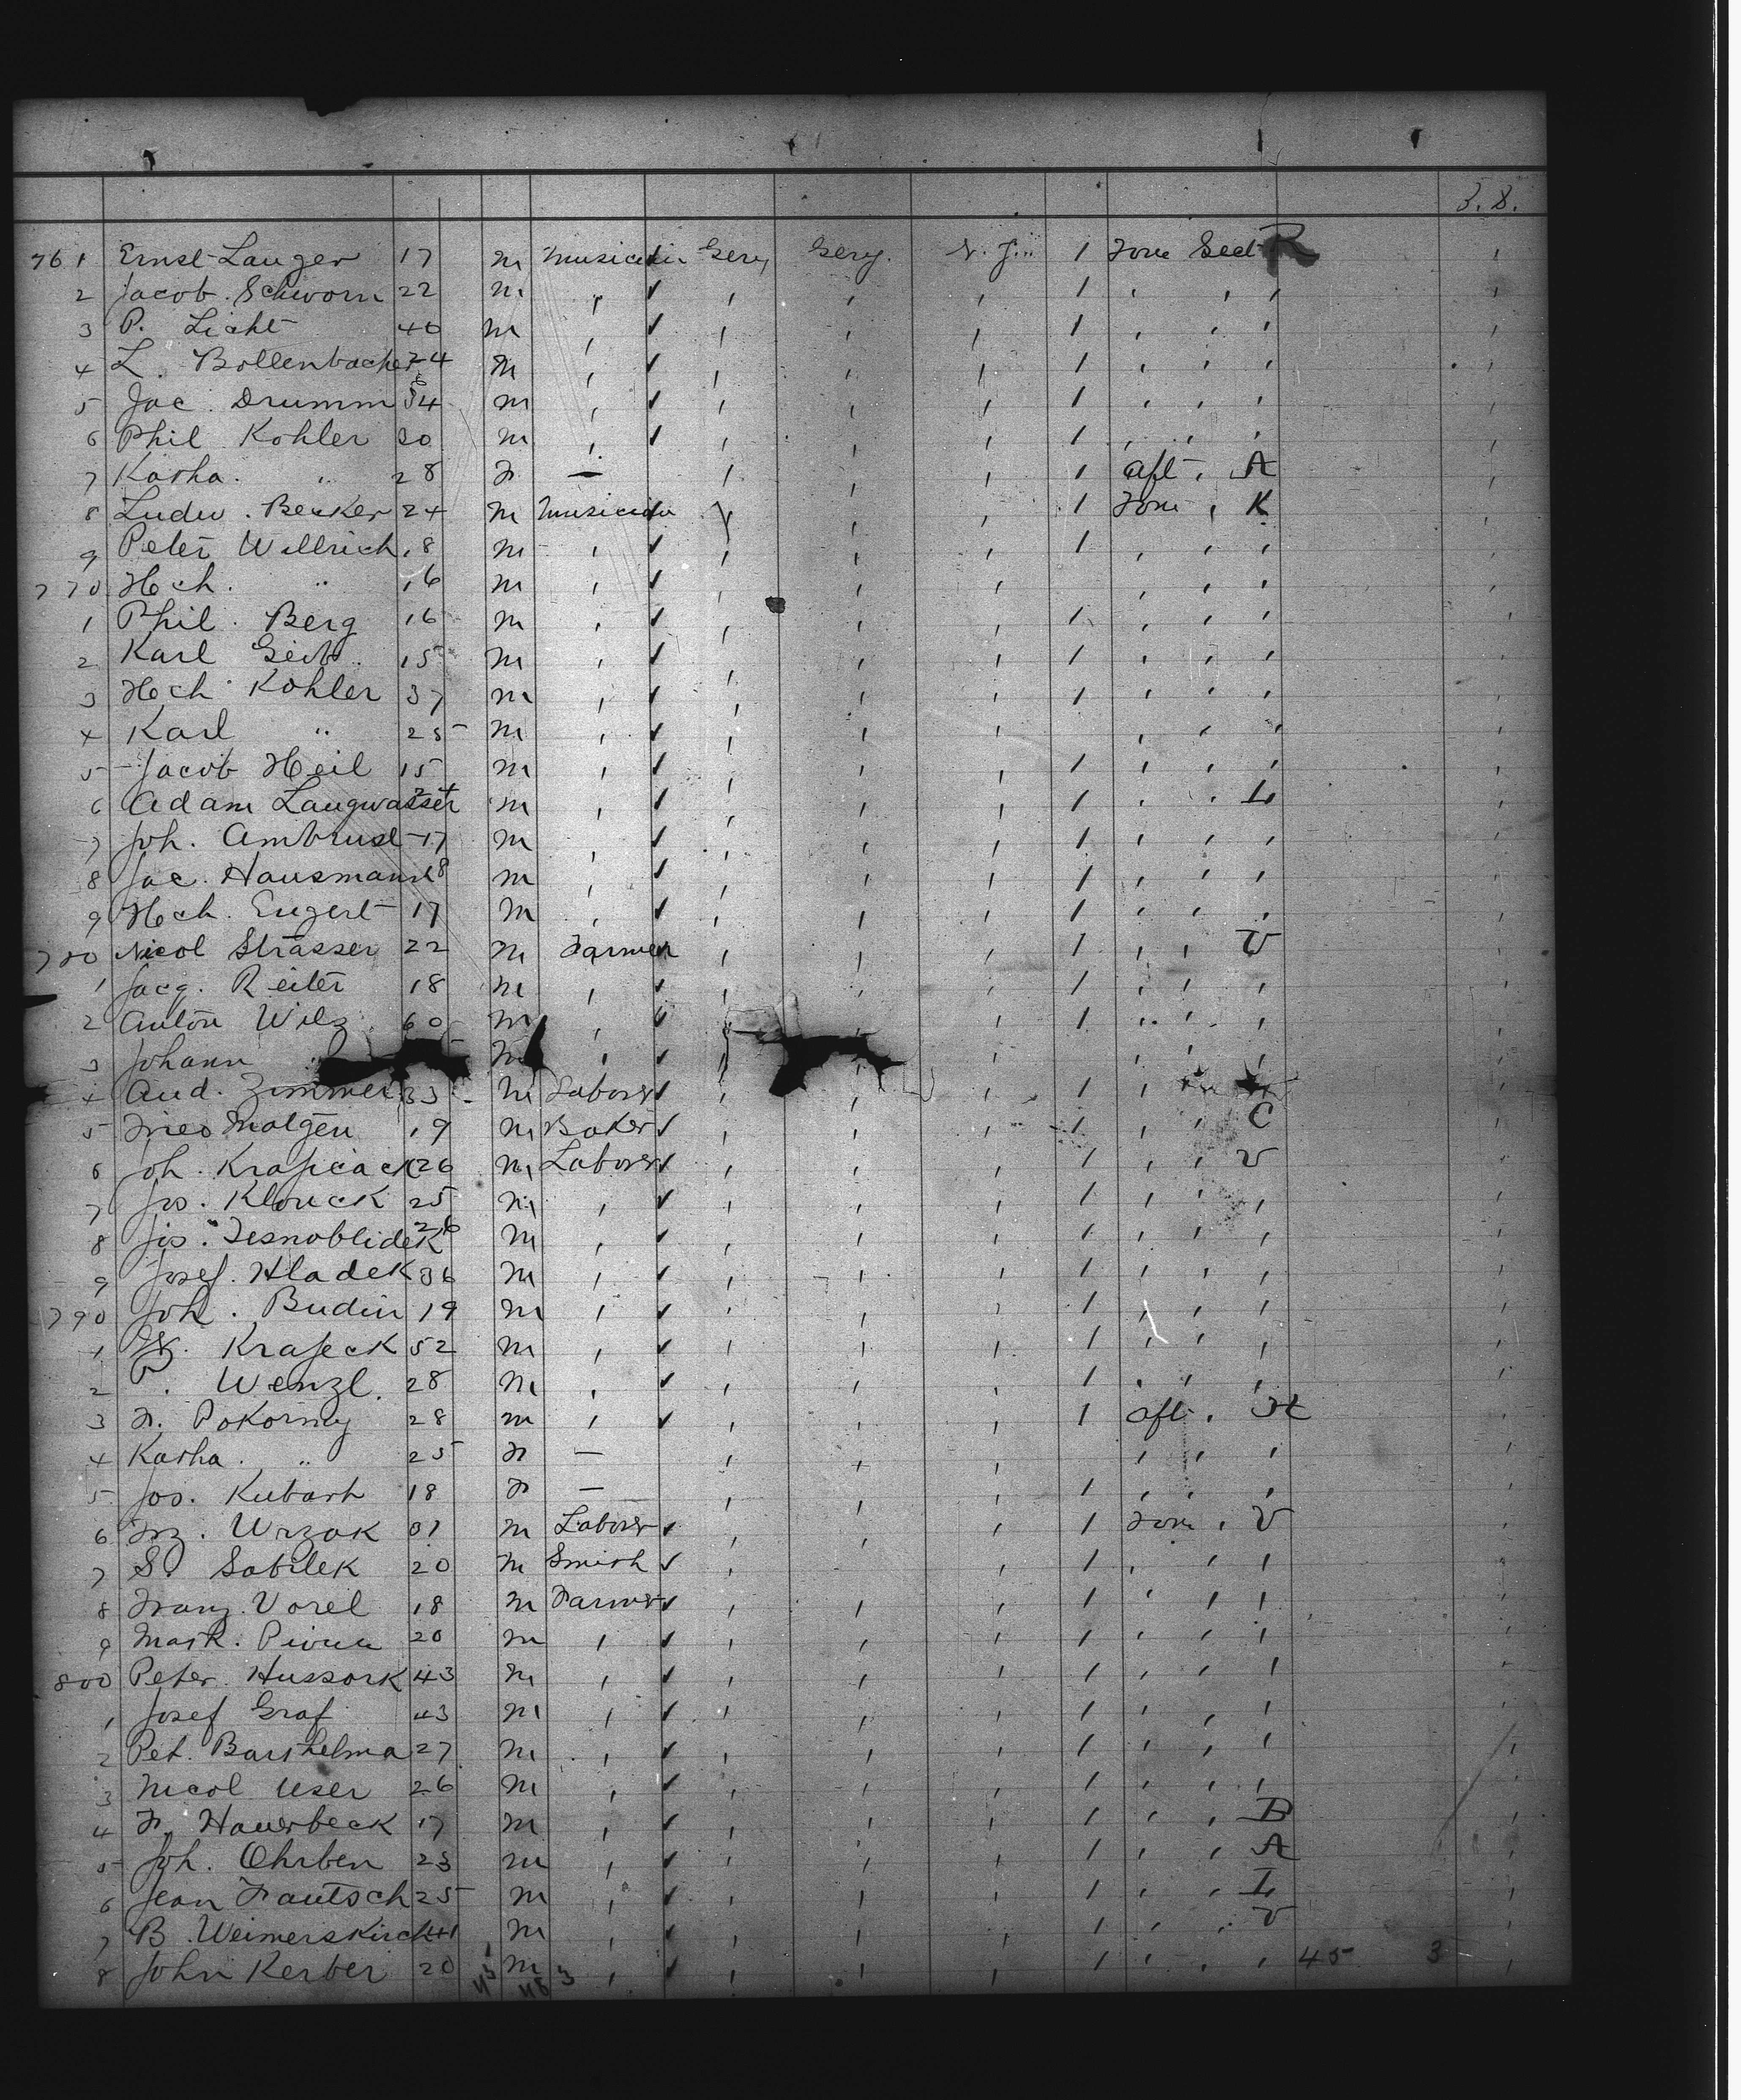 3.8.
761 Ernst Langer 17 m Musician Gery Gery. N.Y. 1 Forw Sect R
2 Jacob. Schworm 22 m , ✓ , , , 1 , , ,
3 P. Licht 40 m , ✓ , , , 1 , , ,
4 L. Bollenbacher 24 m , ✓ , , , 1 , , ,
5 Jac. Drumm 34 m , ✓ , , , 1 , , ,
6 Phil Kohler 20 m , ✓ , , , 1 , , ,
7 Katha. " 28 F — , , , 1 aft , A
8 Ludw. Becker 24 m Musician , , , 1 Forw , K
9 Peter Willrich 18 m , ✓ , , , 1 , , ,
770 Hch. " 16 m , ✓ , , , , , ,
1 Phil. Berg 16 m , ✓ , , , 1 , , ,
2 Karl Geib. 15 m , ✓ , , , 1 , , ,
3 Hch Kohler 37 m , ✓ , , , 1 , , ,
4 Karl " 25 m , ✓ , , , , , ,
5 Jacob Heil 15 m , ✓ , , , 1 , , ,
6 Adam Langwasser m , ✓ , , , 1 , , L
7 Joh. Ambrust 17 m , ✓ , , , 1 , , ,
8 Jac. Hausmann 18 m , ✓ , , , 1 , , ,
9 Hch. Engert 17 m , ✓ , , , 1 , , ,
780 Nicol Strasser 22 m Farmer , , , 1 , , V
1 Jacq. Reiter 18 m , ✓ , , , 1 , , ,
2 Anton Wilz. 60 m , ✓ , , , 1 , , ,
3 Johann m , ✓ , , , , ,
4 And. Zimmer 33 m Laborer ✓ , , , 1 ,
5 Molgen 19 m Baker ✓ , , , 1 , , C
6 Joh. Krapcack 26 m Laborer ✓ , , , 1 , , V
7 Jos. Klouck 25 m , ✓ , , , 1 , , ,
8 Jos. Tesnoblidek 26 m , ✓ , , , 1 , , ,
9 Josef. Hladek 36 m , ✓ , , , 1 , , ,
790 Joh. Budin 19 m , ✓ , , , 1 , , ,
1 Krapeck 52 m , ✓ , , , 1 , , ,
2 P. Wenzl. 28 m , ✓ , , , 1 , , ,
3 F. Pokorny 28 m , ✓ , , , 1 aft , H
4 Katha. " 25 F — , , , , , ,
5 Jos. Kubarh 18 F — , , , 1 , , ,
6 Frz. Wrzak 31 m Laborer ✓ , , , 1 Forw , V
7 S. Sobilek 20 m Smith ✓ , , , 1 , , ,
8 Franz. Vorel 18 m Farmer ✓ , , , 1 , , ,
9 Math. 20 m , ✓ , , , 1 , , ,
800 Peter Hussork 43 m , ✓ , , , 1 , , ,
1 Josef Graf 43 m , ✓ , , , 1 , , ,
2 Pet. Barthelma 27 m , ✓ , , , 1 , , ,
3 Nicol User 26 m , ✓ , , , 1 , , ,
4 F. Hauerbeck 17 m , ✓ , , , 1 , , B
5 Joh. Ohrben 23 m , ✓ , , , 1 , , A
6 Jean Frautsch 25 m , ✓ , , , 1 , , L
7 B. Weimerskirch 41 m , ✓ , , , 1 , , V
8 John Kerber 20 m , ✓ , , , 1 , , , 45 3
45 48 3